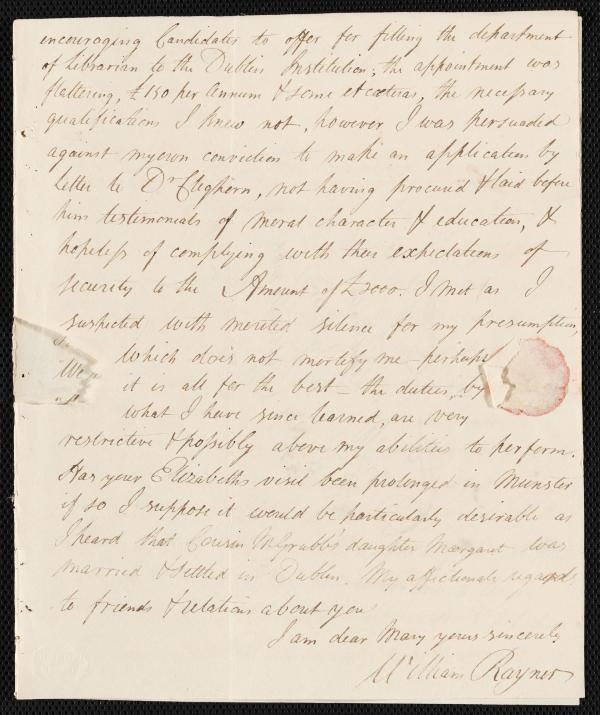 encouraging Candidates to offer for filling the department
of Librarian to the Dublin Institution; the appointment was
flattering, £150 per Annum & some etcæteras, the necessary
qualifications I knew not, however I was persuaded
against my own conviction to make an application by
Letter to Dr Cleghorn, not having procured & laid before
him testimonials of moral character & education, &
hopeless of complying with their expectations of
security to the Amount of £2000. I met as I
suspected with merited silence for my presumption,
which does not mortify me – perhaps
it is all for the best – the duties, by
what I have since learned, are very
restrictive & possibly above my abilities to perform.
Has your Elizabeths visit been prolonged in Munster
if so I suppose it would be particularly desirable as
I heard that Cousin Grubb's daughter Margaret was
married & settled in Dublin. My affectionate regards
to friends & relations about you
I am dear Mary yours sincerely
William Rayner